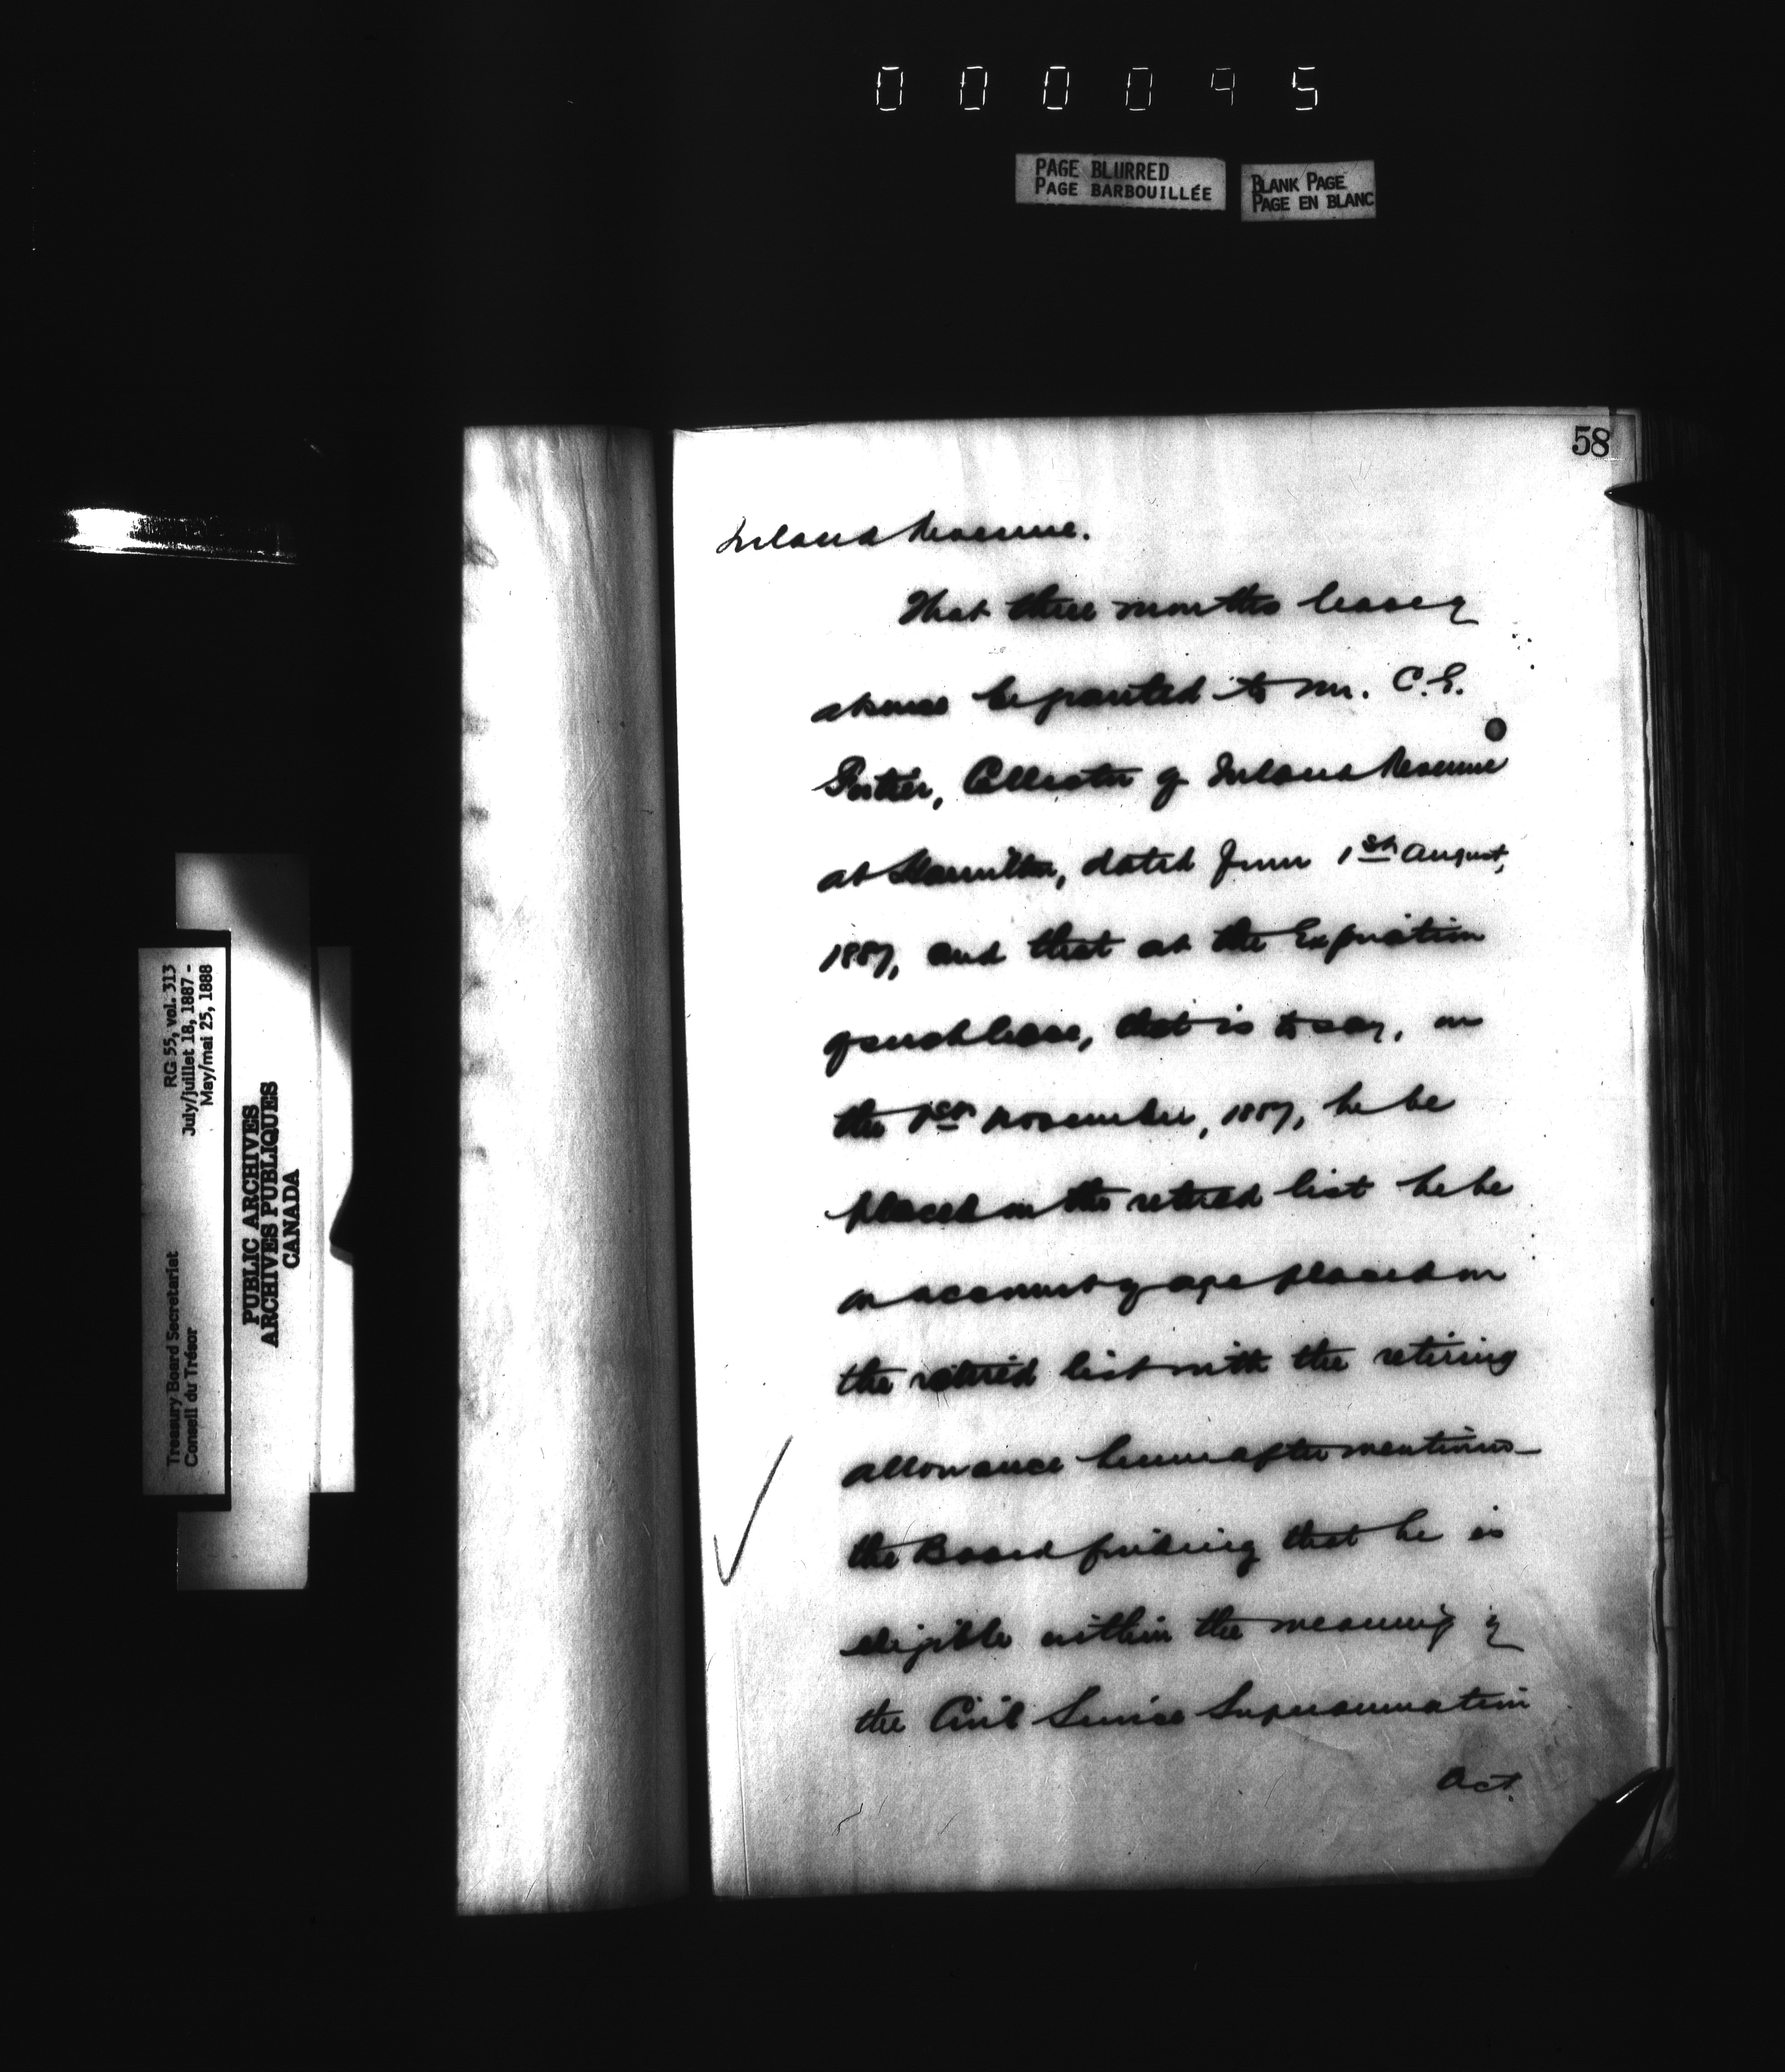 000095
PAGE BLURRED
PAGE BARBOUILLÉE
BLANK PAGE
PAGE EN BLANC
58
Inland Revenue.
That three months leave of
absence be granted to Mr. C.E.
Fortier, Collector of Inland Revenue
at Hamilton, dated from 1st August,
1887, and that at the expiration
of such leave, that is to say, on
the 1st November, 1887, he be
placed on the retired list he be
on account of age placed on
the retired list with the retiring
allowance hereinafter mentioned
the Board finding that he is
eligible within the meaning of
the Civil Service Superannuation
Act.
RG 55, vol. 313
July/juillet 18, 1887 -
May/mai 25, 1888
Treasury Board Secretariat
Conseil du Trésor
PUBLIC ARCHIVES
ARCHIVES PUBLIQUES
CANADA